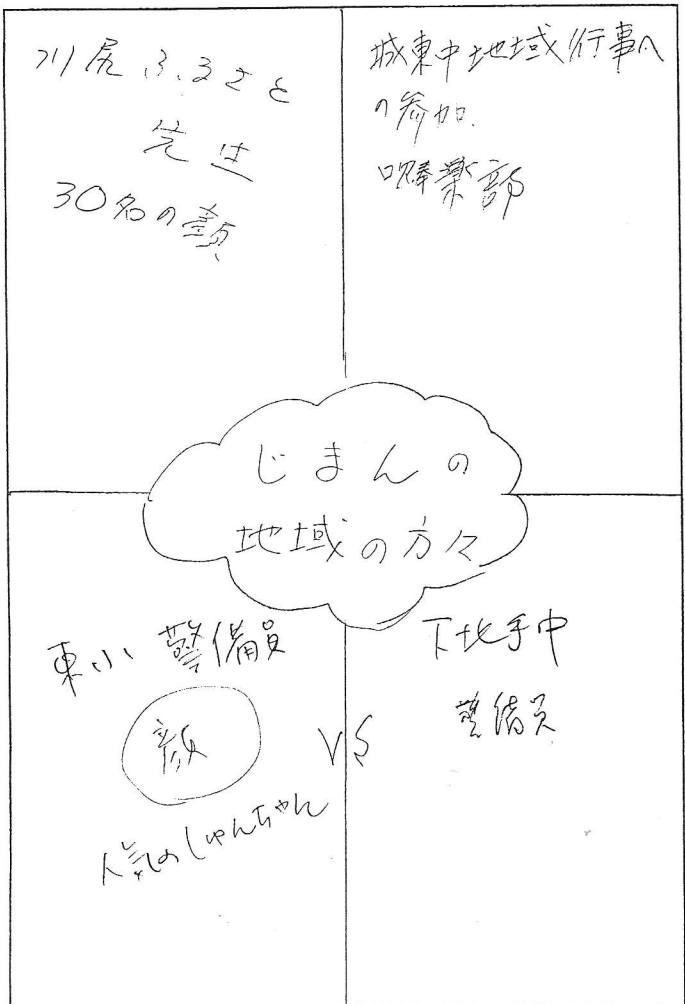 川尻ふるさと
先生
30名の顔
城東中地域行事へ
の参加.
吹奏楽部
じまんの
地域の方々
東小警備員
顔
人気のしゅんちゃん
VS
下北手中
警備員